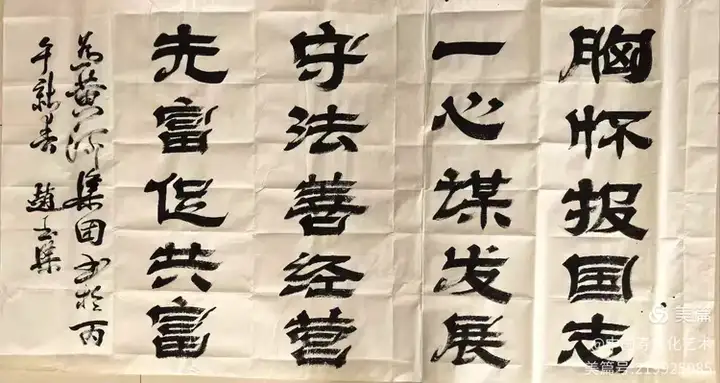 胸怀报国志
一心谋发展
守法善经营
先富促共富
为黄河集团书於丙
午新春 赵玉集
美篇
美篇号:219925985